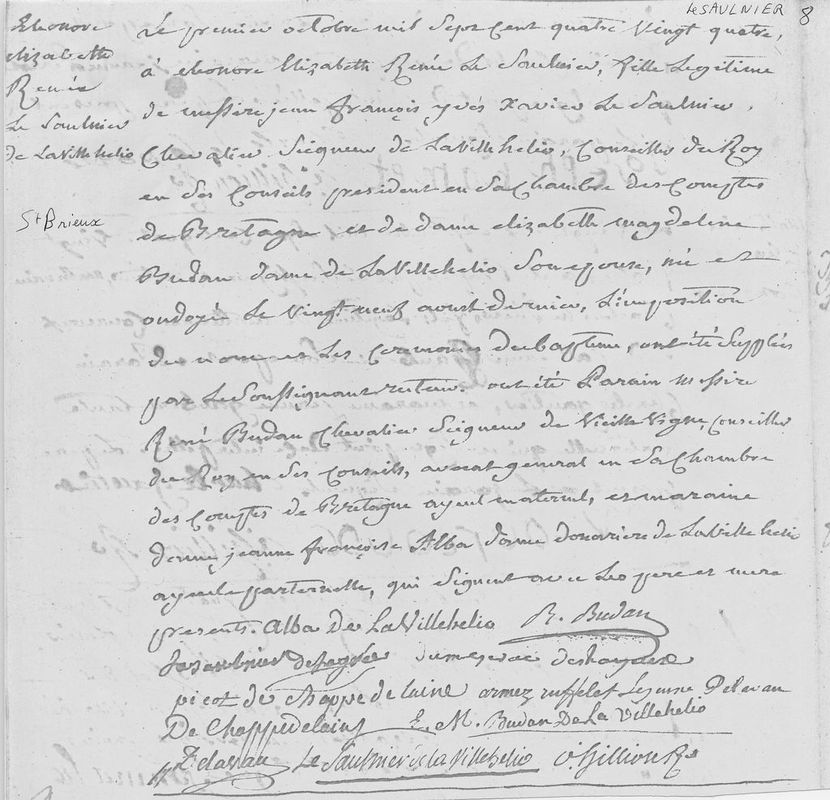 le SAULNIER 8
Eleonore
elizabeth
Renée
Le Saulnier
de LaVillehelio
St Brieux
Le premier octobre mil Sept Cent quatre Vingt quatre,
à eleonore Elizabeth Renée Le Saulnier, fille Legitime
de messire jean françois yves Xavier Le Saulnier,
Chevalier Seigneur de LaVillehelio, Conseiller du Roy
en Ses Conseils president en Sa Chambre des Comptes
de Bretagne et de dame elizabeth magdeleine
Budan dame de LaVillehelio Son epouse, née et
ondoyée Le Vingt neuf aoust dernier, L'imposition
du nom et Les Ceremonies du bapteme, ont été Supplées
par Le Soussignant recteur. ont été Parain messire
René Budan Chevalier Seigneur de Vieille Vigne, Conseiller
du Roy en Ses Conseils, avocat general en Sa Chambre
des Comptes de Bretagne ayeul maternel, et maraine
dame jeanne françoise Alba dame douariere de LaVillehelio
ayeule paternelle, qui Signent avec Les pere et mere
presents. Alba de LaVillehelio R. Budan
picot de Chappedelaine armez ruffelet Lejeune Delavau
De Chappedelaine E. M. Budan De La Villehelio
Delavau Le Saulnier de la Villehelio